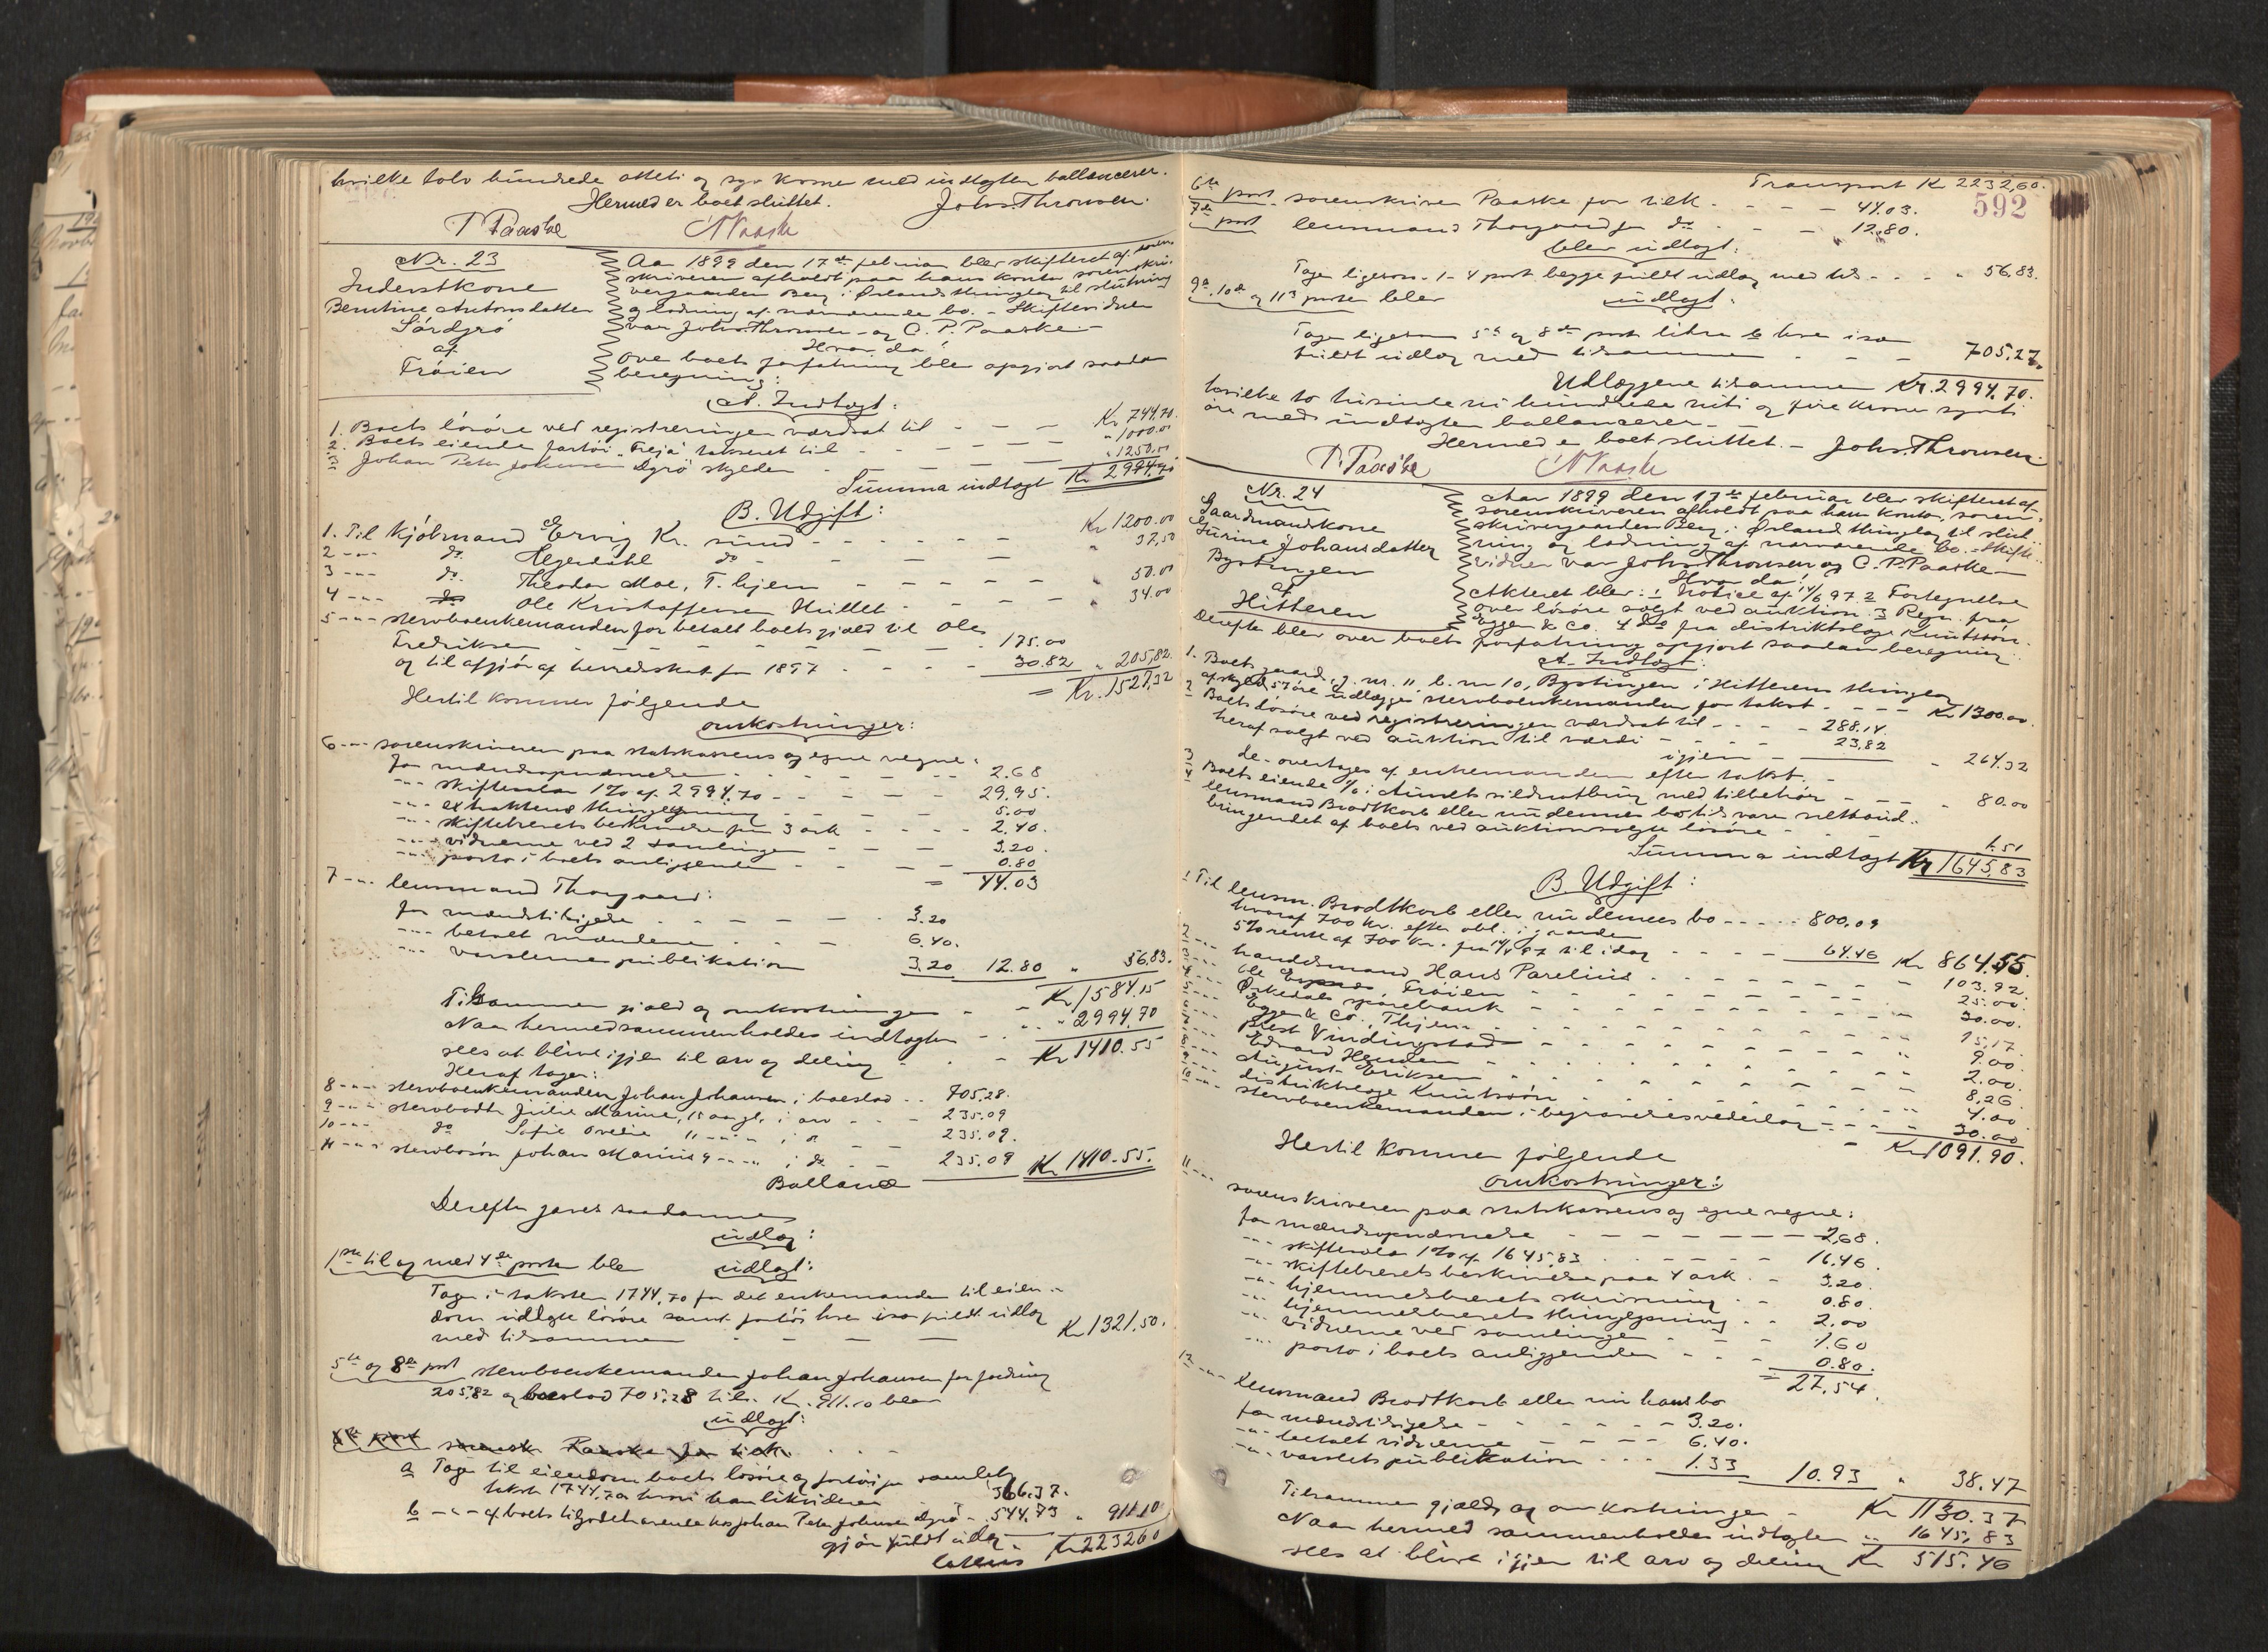 hvilke tolv hundrede otteti og syv kroner med indtægten ballancerer.
Hermed er boet sluttet. Johs. Thronsen.
P Paaske N Paaske
Nr. 23
Inderstkone
Berntine Antonsdatter
Sördyrö
af
Fröien
Aar 1899 den 17de februar blev skifteret af soren-
skriveren afholdt paa hans kontor sorenskri-
vergaarden Berg i Ørlands thinglag til slutning
og lodning af nærværende bo. - Skiftevidner
var Johs. Thronsen og C. P. Paaske. -
Hvor da!
Over boets forfatning blev opgjort saadan
beregning:
A. Indtægt:
1. Boets lösöre ved registreringen værdsat til - - - Kr 744,70.
2. Boets eiende fartöi "Freja" takseret til - - - " 1000.00
3 Johan Peter Johansen Dyrö skylder - - - " 1250.00
Summa indtægt Kr 2994,70
B. Udgift:
1. Til Kjöbmand Ervig Kr. sund - - - Kr 1200.00
2 -"- do. Hegerdahl do - - - " 37,50
3 -"- do. Theodor Moe, T. hjem - - - " 50.00
4 -"- do Ole Kristoffersen Hullet - - - " 34.00
5 -"- stervboenkemanden for betalt boets gjæld til Ole
Fredriksen - - - 175.00
og til afgjör af herredskat for 1897 - - - 30.82 " 205,82.
= Kr. 1527,32
Hertil kommer fölgende
omkostninger:
6 -"- sorenskriveren paa statskassens og egne vegne:
for mændsopnævnelse - - - 2.68
-"- skiftesalær 1% af 2994.70 - - - 29.95.
-"- extraktens thinglysning - - - 5.00
-"- skiftebrevets beskrivelse paa 3 ark - - - 2.40.
-"- vidnerne ved 2 samlinger - - - 3.20
-"- porto i boets anliggender - - - 0.80
= 44.03
7 -"- lensmand Thorgaard:
for mændstilsigelse - - - 3.20
-"- betalt mændene - - - 6.40.
-"- varslernes publikation 3.20 12.80 " 56.83.
Tilsammen gjæld og omkostninger - - Kr 1584.15
Naar hermed sammenholdes indtægten - - " 2994.70
sees at blive igjen til arv og deling - - Kr 1410.55
Heraf tager:
8 -"- stervboenkemanden Johan Johansen i boeslod - - 705.28.
9 -"- stervbodtr Julie Marine, 15 aar gl., i arv - - - 235.09
10 -"- do Sofie Ovelie 11 -"- " i do - - 235.09.
11 -"- stervbosön Johan Marius 9 -"- " i do - - 235.09 Kr 1410.55.
Ballance
Derefter gaves saadanne
udlæg:
1ste til og med 4de poster blev udlagt:
Tager i taksten 1744,70 for det enkemanden til eien-
dom udlagte lösöre samt fartöi hver især fuldt udlæg
med tilsammen - - - Kr 1321.50.
5te og 8de post stervboenkemanden Johan Johansen for fordring
205.82 og boeslod 705.28 tils. Kr. 911.10 blev
udlagt:
a Tager til eiendom boets lösöre og fartöi for samlet
takst 1744,70 hvori han likviderer 366.37.
b -"- af boets tilgodehavende hos Johan Peter Johnsen Dyrö - 544.73 " 911.10
gjör fuldt udlæg.
Latus Kr 2232.60
592
Transport Kr 2232,60.
6te post sorenskriver Paaske for tilk - - - 44.03.
7de post lensmand Thorgaard for do - - - 12.80.
blev udlagt:
Tager ligesom 1-4 post begge fuldt udlæg med tils - - - " 56.83.
9de, 10de og 11te poster blev udlagt:
Tager ligesom 5te og 8de post litra b hver især
fuldt udlæg med tilsammen - - - 705,27.
Udlæggene tilsammen Kr. 2994,70.
hvilke to tusinde ni hundrede niti og fire kroner sytti
öre med indtægten ballancerer. -
Hermed er boet sluttet. - Johs. Thronsen.
P. Paaske N Paaske
Nr. 24
Gaardmandskone
Gurine Johansdatter
Bystingen
af
Hitteren
Aar 1899 den 17de februar blev skifteret af
sorenskriveren afholdt paa hans kontor, soren-
skrivergaarden Berg i Ørland thinglag til slut-
ning og lodning af nærværende bo. - Skifte-
vidner var Johs. Thronsen og C. P. Paaske -
Hvor da!
Akteret blev: 1 Notice af 14/6 97. 2 Fortegnelse
over lösöre solgt ved auktion. 3 Regn. fra
Egger & Co. 4 do fra distriktslæge Knutssön.
Derefter blev over boets forfatning opgjort saadan beregning
A. Indtægt:
1. Boets gaard, g. nr. 11, b. nr 10, Bystingen i Hitterens thinglag
af skyld 57 öre udlægges stervboenkemanden for takst - - - Kr 1300.00.
2 Boets lösöre ved registreringen værdsat til - - - 288.14.
heraf solgt ved auktion til værdi - - - 23,82
igjen - - - " 264.32
de overtages af enkemanden efter takst. -
3 Boets eiende i sildnotbrug med tilbehör - - - " 80.00
4 lensmand Brodtkorb eller nu dennes bo tilsvarer nettoud-
bringendet af boets ved auktion solgte lösöre - - - 1.51
Summa indtægt Kr 1645,83
B. Udgift:
1 Til lensm. Brodtkorb eller nu dennes bo - - - 800.09
hvoraf 700 Kr. efter obl. i gaarden
5% rente af 700 Kr. fra til idag - - - 64.46 Kr 864.55.
2 -"- handelsmand Hans Parelius - - - 103.92.
3 -"- Ole Fröien - - - 25.00.
4 -"- Orkedals sparebank - - - 30.00.
5 -"- Egger & Co., Thjem - - - 15,17.
6 -"- Præst Vindingstad - - - " 9.00.
7 -"- Edvard - - - 2.00.
8 -"- August Eriksen - - - 8,26.
9 -"- distriktslæge Knutssön - - - " 4.00
10 -"- stervboenkemanden i begravelsesvederlag - - - 30.00
= Kr 1091.90.
Hertil kommer fölgende
omkostninger:
11 -"- sorenskriveren paa statskassens og egne vegne:
for mændsopnævnelse - - - 2,68.
-"- skiftesalær 1% af 1645,83 - - - 16.46.
-"- skiftebrevets beskrivelse paa 4 ark - - 3.20
-"- hjemmelsbrevets skrivning - - 0.80.
-"- hjemmelsbrevets thinglysning - - 2.00
-"- vidnerne ved samlingen - - - 1.60
-"- porto i boets anliggender - - - 0.80.
= 27,54.
12 -"- lensmand Brodtkorb eller nu hans bo
for mændstilsigelse - - - 3.20.
-"- betalt vidnerne - - - 6.40.
-"- varslets publikation - - - 1.33 10.93 " 38.47
Tilsammen gjæld og omkostninger - Kr 1130.37
Naar hermed sammenholdes indtægten - " 1645,83
sees at blive igjen til arv og deling Kr 515.46